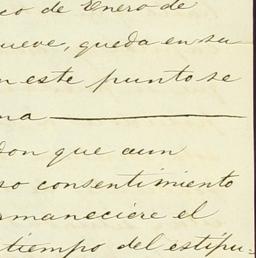 co de Enero de
ueve, queda en su
n este punto se
na
don que aun
so consentimiento
rmaneciere el
tiempo del estipu-